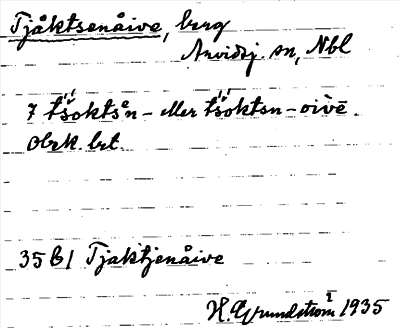 Tjåktsenåive, berg
Arvidsj. sn, Nbl
7 tš́okts̊n- eller tš́oktsn-oìvē.
Obek. bet.
35 B1 Tjaktjenåive
H. Grundström 1935